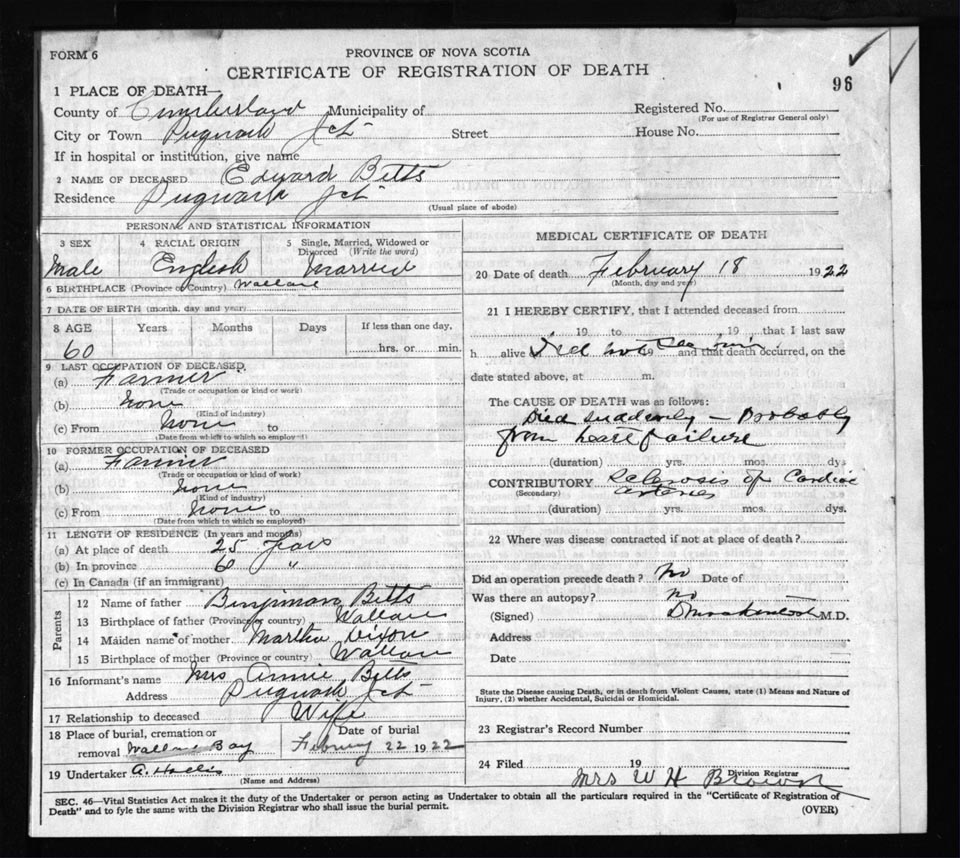 FORM 6
PROVINCE OF NOVA SCOTIA
CERTIFICATE OF REGISTRATION OF DEATH
96
1 PLACE OF DEATH
County of Cumberland Municipality of
Registered No.
(For use of Registrar General only)
City or Town Pugwash Jct Street
House No.
If in hospital or institution, give name
2 NAME OF DECEASED Edward Betts
Residence Pugwash Jct
(Usual place of abode)
PERSONAL AND STATISTICAL INFORMATION
3 SEX 4 RACIAL ORIGIN 5 Single, Married, Widowed or Divorced (Write the word)
Male English Married
6 BIRTHPLACE (Province or Country) Wallace
7 DATE OF BIRTH (month, day and year)
8 AGE Years Months Days If less than one day,
60 hrs. or min.
9 LAST OCCUPATION OF DECEASED
(a) Farmer
(Trade or occupation or kind of work)
(b) none
(Kind of industry)
(c) From none to
(Date from which to which so employed)
10 FORMER OCCUPATION OF DECEASED
(a) Farmer
(Trade or occupation or kind of work)
(b) none
(Kind of industry)
(c) From none to
(Date from which to which so employed)
11 LENGTH OF RESIDENCE (In years and months)
(a) At place of death 25 years
(b) In province 60 "
(c) In Canada (if an immigrant)
Parents
12 Name of father Benjiman Betts
13 Birthplace of father (Province or country) Wallace
14 Maiden name of mother Martha Dixon
15 Birthplace of mother (Province or country) Wallace
16 Informant's name Mrs Annie Betts
Address Pugwash Jct
17 Relationship to deceased Wife
18 Place of burial, cremation or removal Wallace Bay
Date of burial
February 22 1922
19 Undertaker A. Hollis
(Name and Address)
MEDICAL CERTIFICATE OF DEATH
20 Date of death February 18 1922
(Month, day and year)
21 I HEREBY CERTIFY, that I attended deceased from
19 to , 19 that I last saw
h alive Did not see him 19 and that death occurred, on the
date stated above, at m.
The CAUSE OF DEATH was as follows:
Died suddenly — Probably
from heart failure
(duration) yrs. mos. dys
CONTRIBUTORY Sclerosis of Cardiac
(Secondary) arteries
(duration) yrs. mos. dys.
22 Where was disease contracted if not at place of death?
Did an operation precede death? No Date of
Was there an autopsy? No
(Signed) M.D.
Address
Date
State the Disease causing Death, or in death from Violent Causes, state (1) Means and Nature of
Injury, (2) whether Accidental, Suicidal or Homicidal.
23 Registrar's Record Number
24 Filed 19
Mrs W H Brown
Division Registrar
SEC. 46—Vital Statistics Act makes it the duty of the Undertaker or person acting as Undertaker to obtain all the particulars required in the "Certificate of Registration of
Death" and to fyle the same with the Division Registrar who shall issue the burial permit.
(OVER)